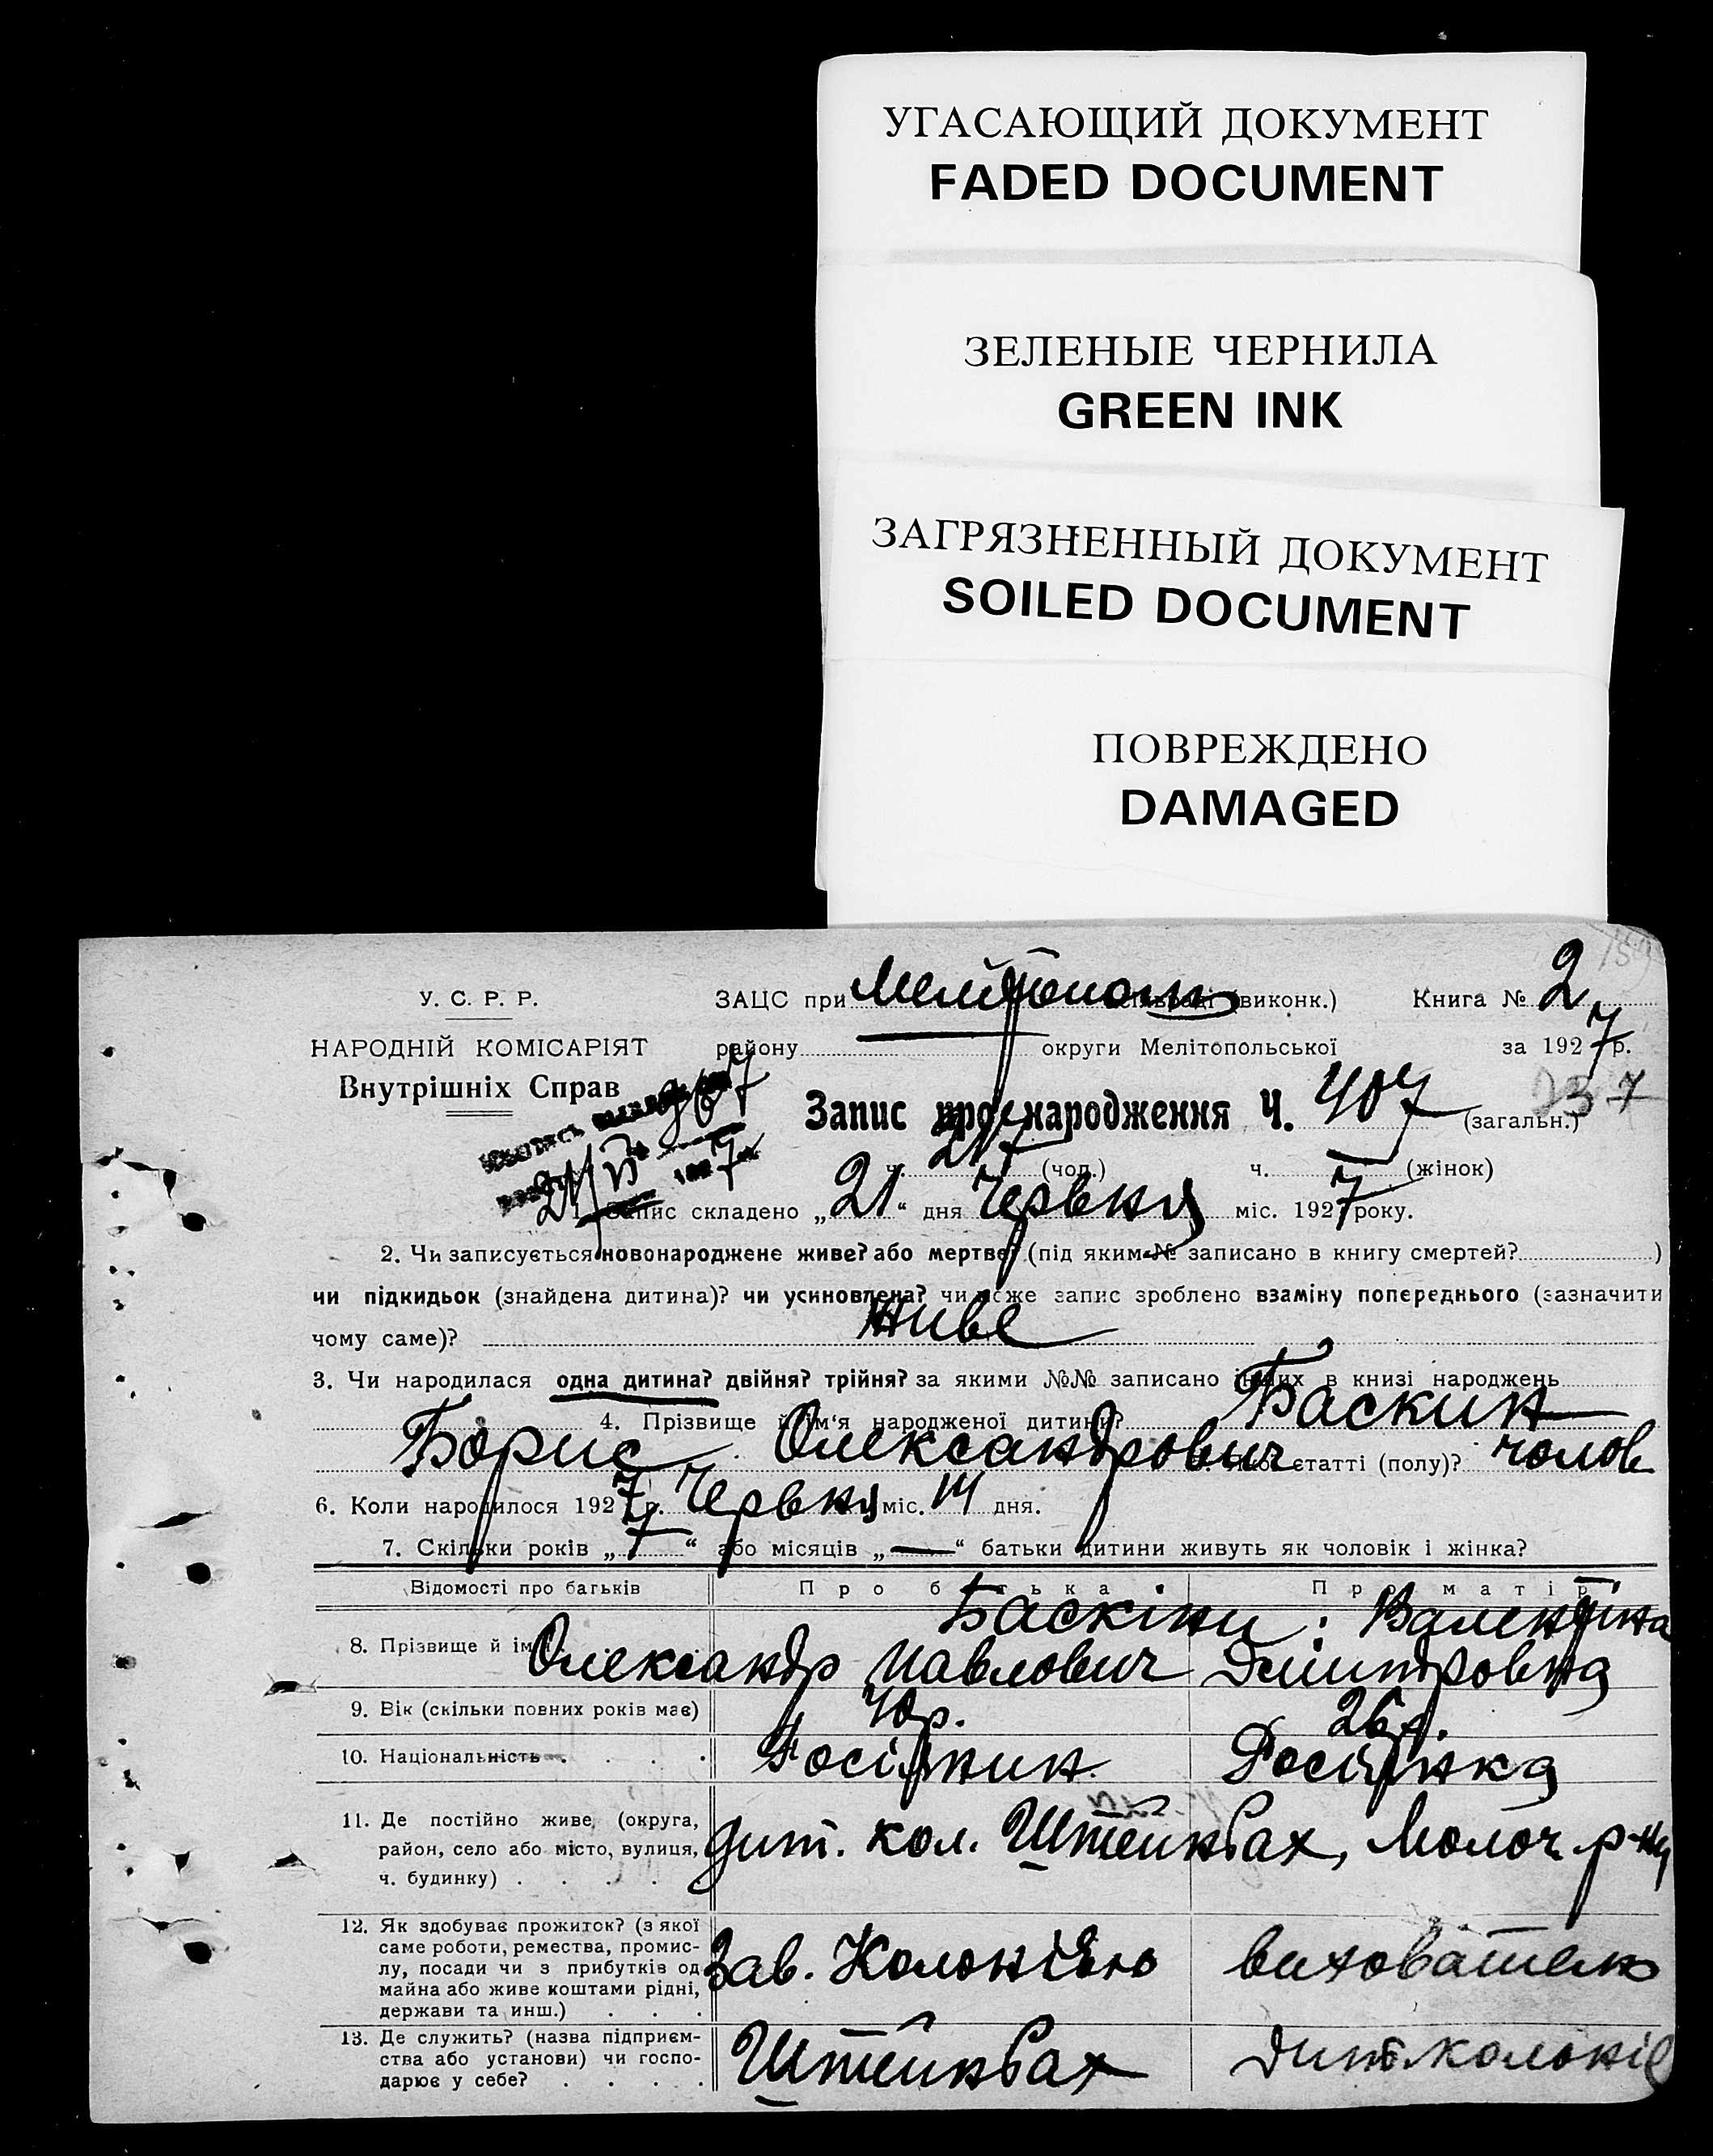 УГАСАЮЩИЙ ДОКУМЕНТ
FADED DOCUMENT
ЗЕЛЕНЫЕ ЧЕРНИЛА
GREEN INK
ЗАГРЯЗНЕННЫЙ ДОКУМЕНТ
SOILED DOCUMENT
ПОВРЕЖДЕНО
DAMAGED
У. С. Р. Р.
НАРОДНІЙ КОМІСАРІЯТ
Внутрішніх Справ
ЗАЦС при (виконк.) Книга № 2
району округи Мелітопольської за 1927 р.
Запис про народження Ч. 407 (загальн.) 237
ч. 217 (чол.) ч. (жінок)
Запис складено „21“ дня Червня міс. 1927 року.
2. Чи записується новонароджене живе? або мертве? (під яким № записано в книгу смертей? )
чи підкидьок (знайдена дитина)? чи усиновлена? чи може запис зроблено взаміну попереднього (зазначити
чому саме)? живе
3. Чи народилася одна дитина? двійня? трійня? за якими №№ записано інших в книзі народжень
4. Прізвище й ім'я народженої дитини? Баскин
Борис Олександрович статті (полу)? чолов
6. Коли народилося 1927 р. Червня міс. 14 дня.
7. Скільки років „7“ або місяців „—“ батьки дитини живуть як чоловік і жінка?
Відомості про батьків Про батька Про матір
8. Прізвище й ім'я Баскіни: Валентіна
Олександр Павлович Дмитровна
9. Вік (скільки повних років має) 40 р. 26 р.
10. Національність Росіянин Росіянка
11. Де постійно живе (округа,
район, село або місто, вулиця,
ч. будинку)
дит. кол. Штейнбах, Молоч. р-ну
12. Як здобуває прожиток? (з якої
саме роботи, ремества, промис-
лу, посади чи з прибутків од
майна або живе коштами рідні,
держави та инш.)
Зав. Колонією вихователь
13. Де служить? (назва підприєм-
ства або установи) чи госпо-
дарює у себе?
Штейнбах Дит. колонів